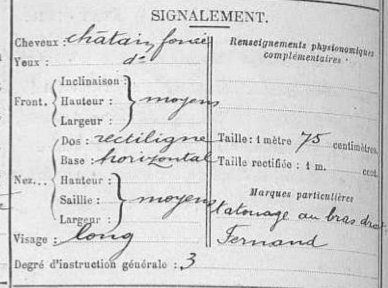 SIGNALEMENT.
Cheveux : châtain foncé
Yeux : do
Front. Inclinaison :
Hauteur : moyens
Largeur :
Nez... Dos : rectiligne
Base : horizontal
Hauteur :
Saillie : moyens
Largeur :
Visage : long
Degré d'instruction générale : 3
Renseignements physionomiques
complémentaires :
Taille : 1 mètre 75 centimètres.
Taille rectifiée : 1 m. cent.
Marques particulières
tatouage au bras droit
Fernand